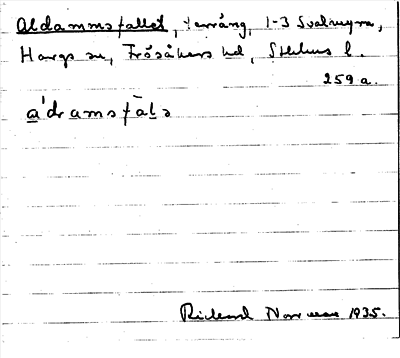 Aldammsfallet, terräng, 1-3 Svalmyra,
Hargs sn, Frösåkers hd, Sthlms l.
259 a.
a'dramsfāls
Rickard Norman 1935.